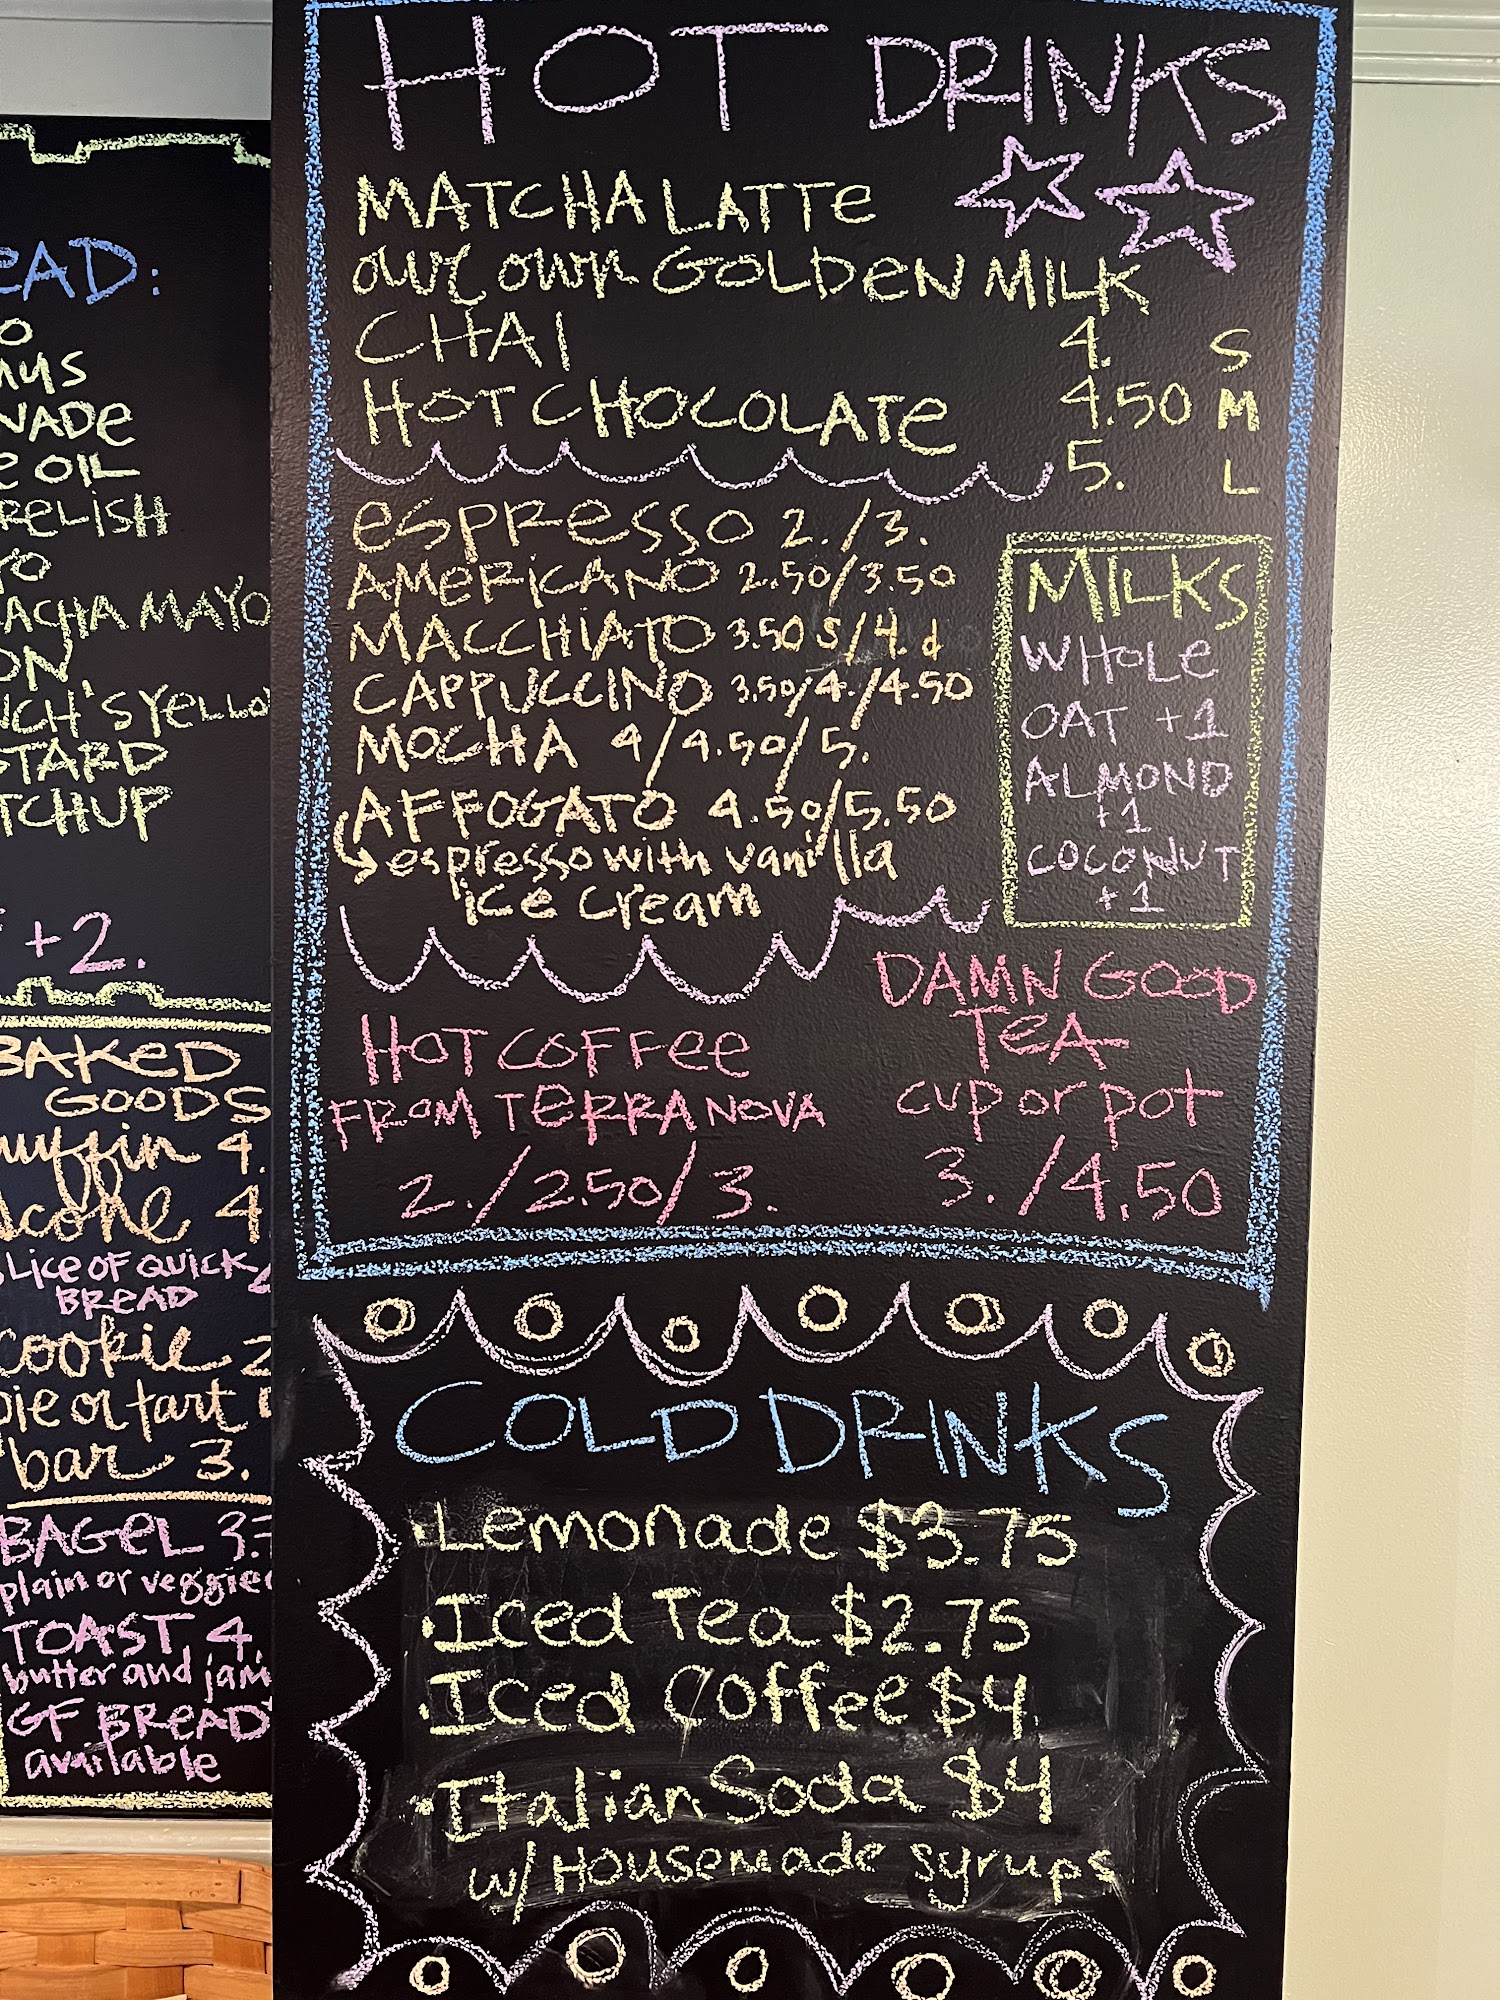 HOT DRINKS
MATCHA LATTE
our own GOLDEN MILK
CHAI 4. S
HOT CHOCOLATE 4.50 M
5. L
espresso 2./3.
AMERICANO 2.50/3.50
MACCHIATO 3.50 s/4. d
CAPPUCCINO 3.50/4./4.50
MOCHA 4/4.50/5.
AFFOGATO 4.50/5.50
espresso with vanilla
ice cream
MILKS
WHOLE
OAT +1
ALMOND
+1
COCONUT
+1
HOT COFFEE
FROM TERRA NOVA
2./2.50/3.
DAMN GOOD
TEA
cup or pot
3./4.50
COLD DRINKS
·Lemonade $3.75
·Iced Tea $2.75
·Iced Coffee $4
·Italian Soda $4
w/ Housemade syrups
EAD:
NADE
OIL
RELISH
ACHA MAYO
TARD
TCHUP
+2.
BAKED
GOODS
muffin 4.
scone 4
SLICE OF QUICK
BREAD
cookie 2
pie or tart
bar 3.
BAGEL 3.
plain or veggie
TOAST 4.
butter and jam
GF BREAD
available